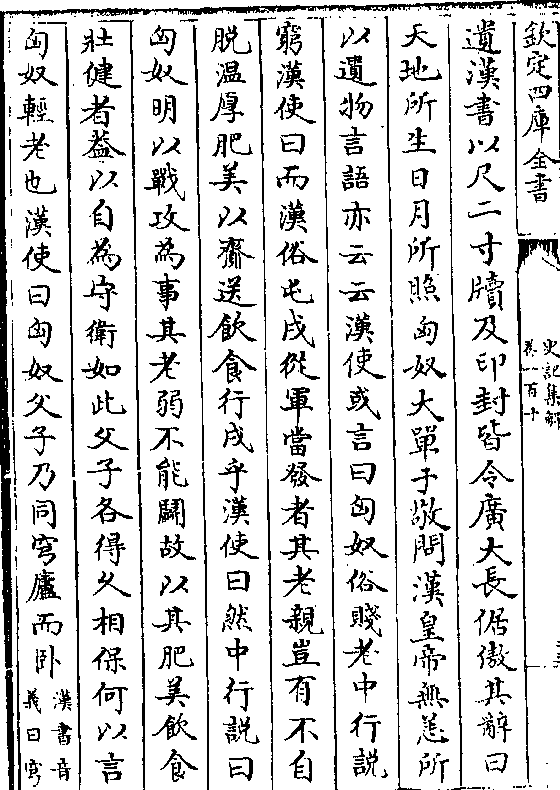 欽定四庫全書
史記集解
卷一百十
遺漢書以尺二寸牘及印封皆令廣大長倨傲其辭曰
天地所生日月所照匈奴大單于敬問漢皇帝無恙所
以遺物言語亦云云漢使或言曰匈奴俗賤老中行説
窮漢使曰而漢俗屯戍從軍當發者其老親豈有不自
脱温厚肥美以齎送飲食行戍乎漢使曰然中行説曰
匈奴明以戰攻為事其老弱不能鬭故以其肥美飲食
壯健者葢以自為守衛如此父子各得乆相保何以言
匈奴輕老也漢使曰匈奴父子乃同穹廬而卧漢書音
義曰穹